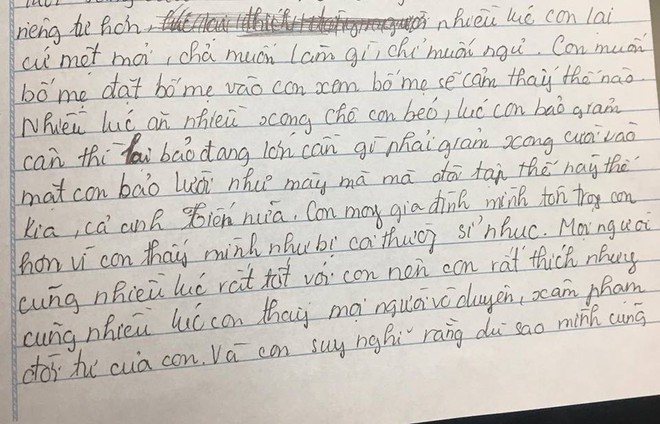 riêng tư hơn, nhiều lúc con lại
cứ mệt mỏi, chả muốn làm gì, chỉ muốn ngủ. Con muốn
bố mẹ đặt bố mẹ vào con xem bố mẹ sẽ cảm thấy thế nào.
Nhiều lúc ăn nhiều xong chê con béo, lúc con bảo giảm
cân thì lại bảo đang lớn cần gì phải giảm xong cười vào
mặt con bảo lười như mày mà mà đòi tập thế này thế
kia, cả anh nữa. Con mong gia đình mình tôn trọng con
hơn vì con thấy mình như bị coi thường sỉ nhục. Mọi người
cũng nhiều lúc rất tốt với con nên con rất thích nhưng
cũng nhiều lúc con thấy mọi người vô duyên, xâm phạm
đời tư của con. Và con suy nghĩ rằng dù sao mình cũng